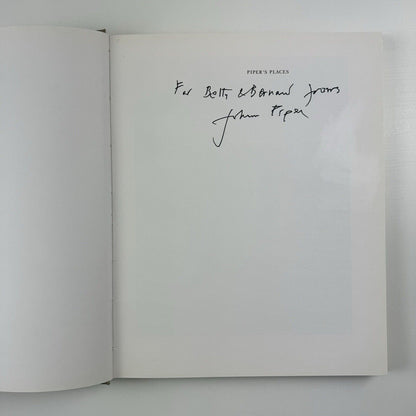 PIPER'S PLACES
For Betty & Bernard from
John Piper